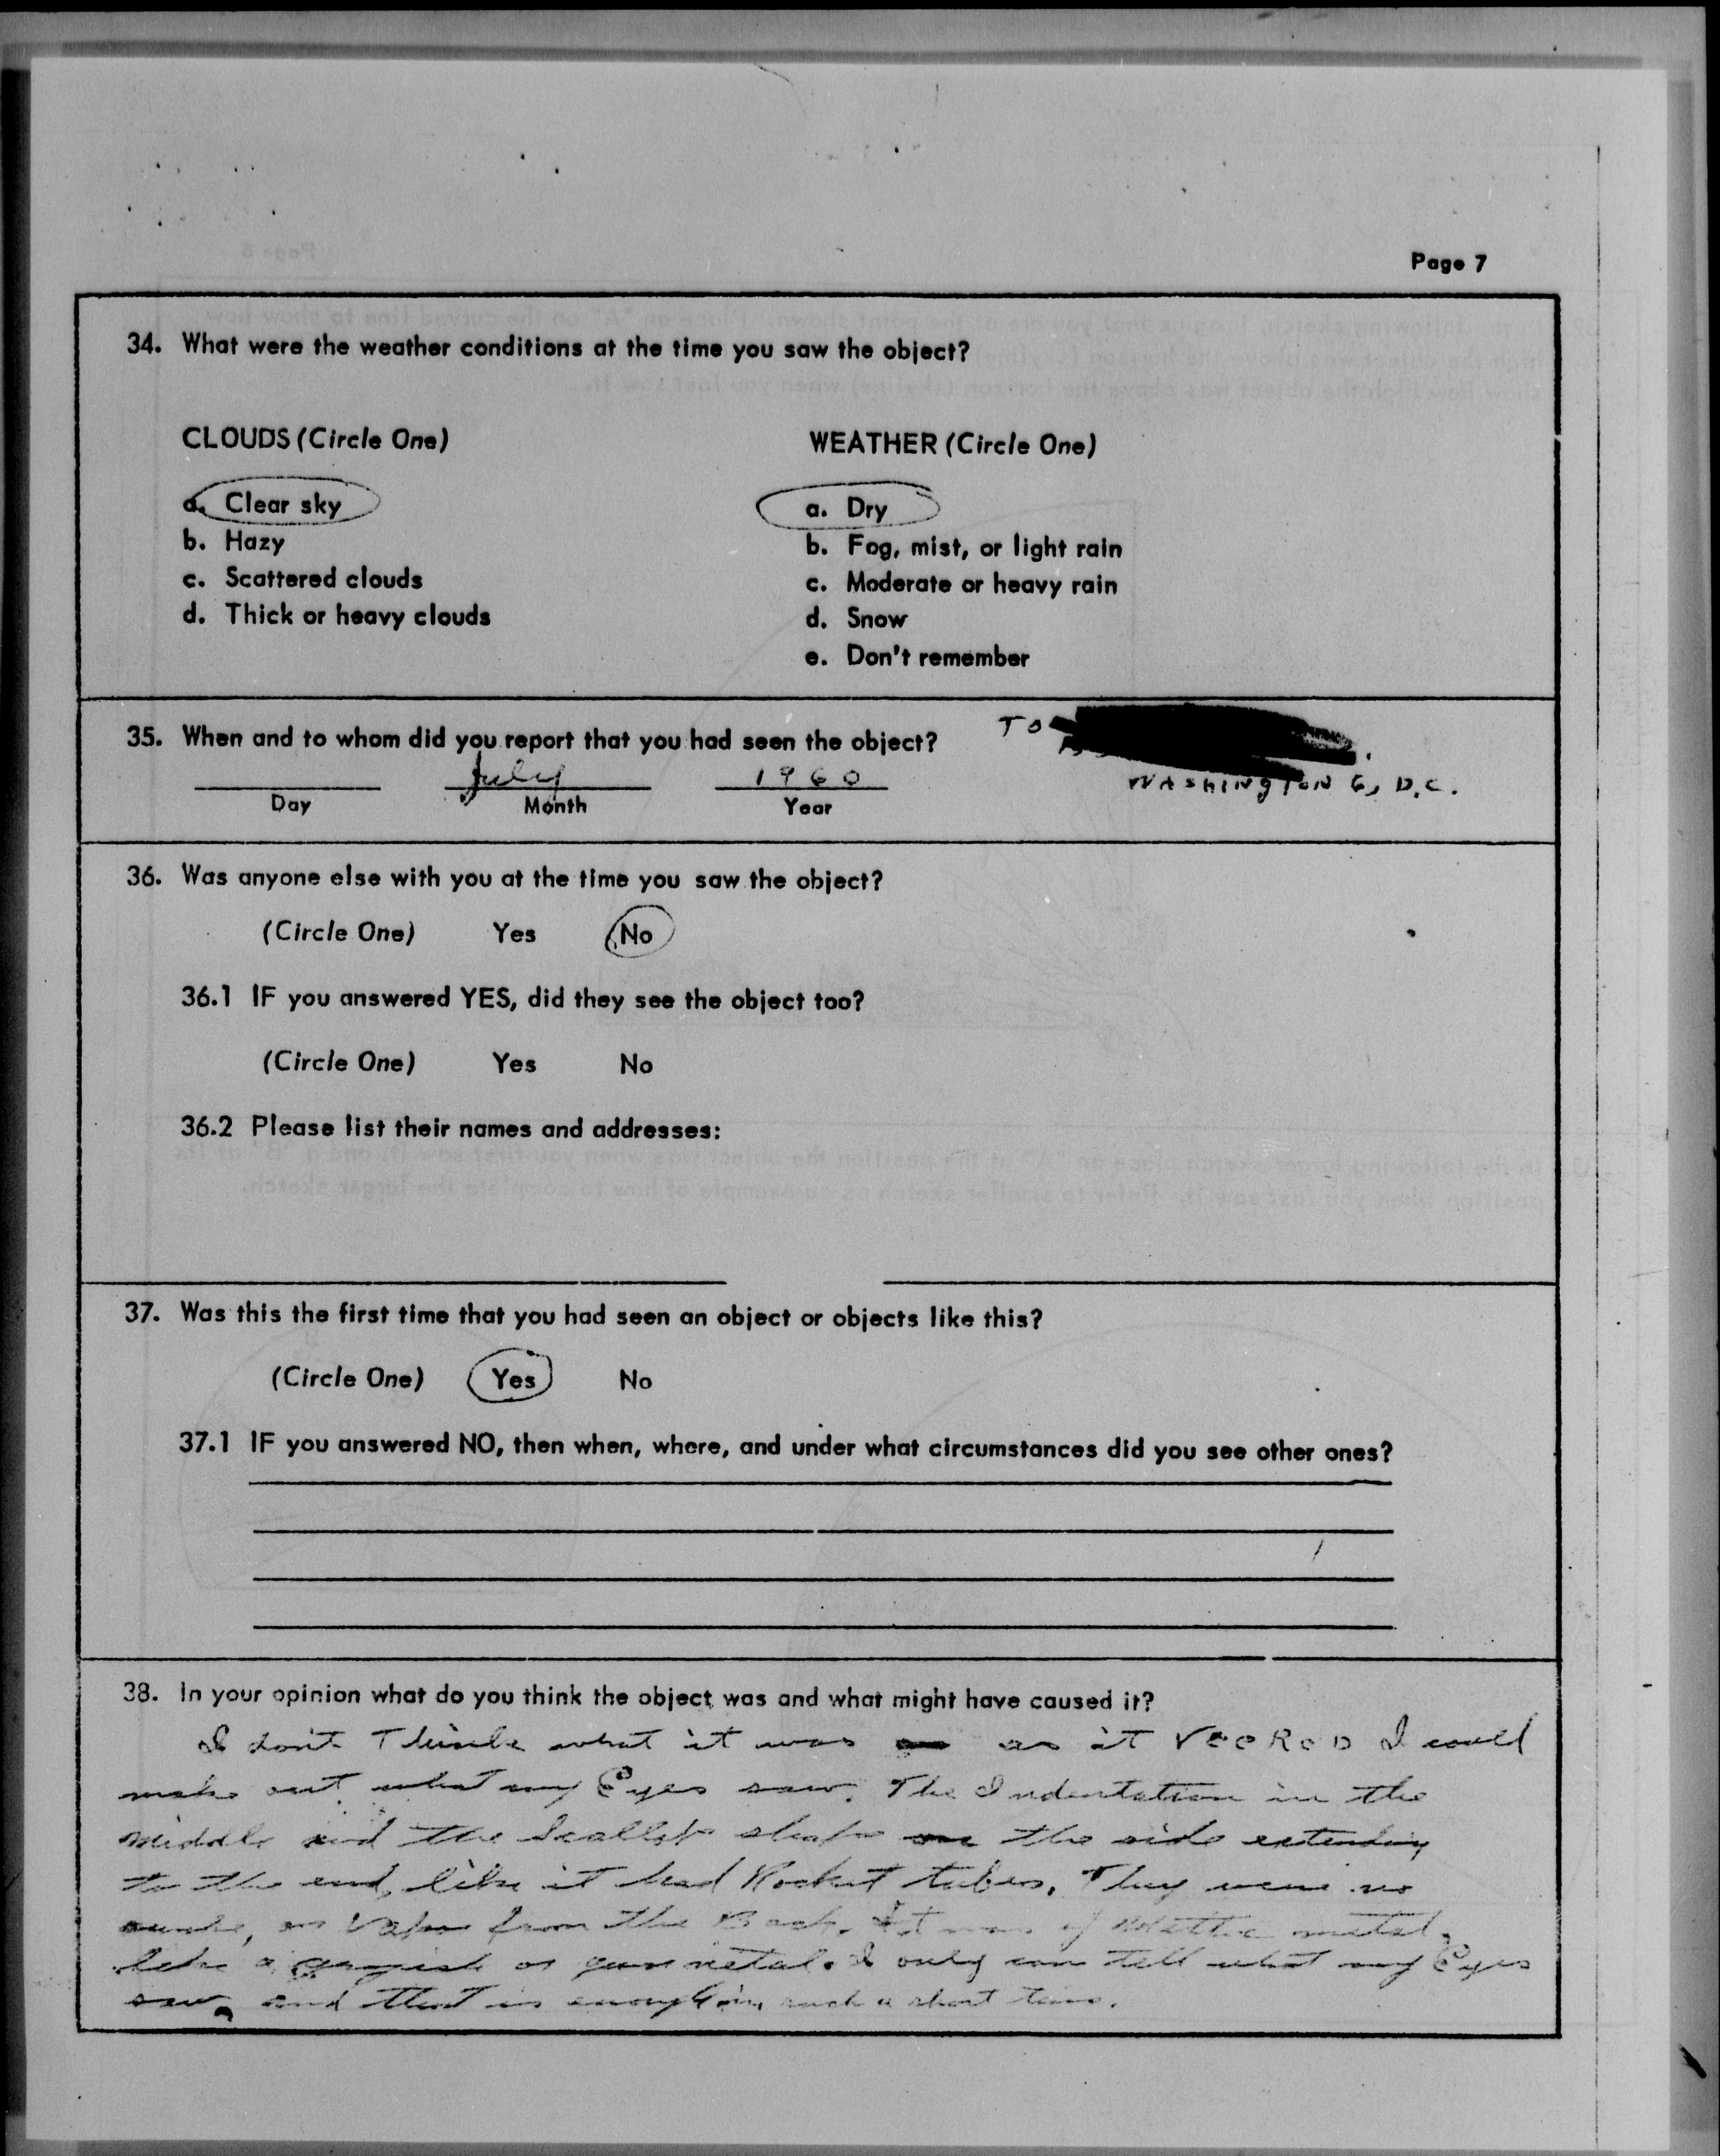 Page 7
34. What were the weather conditions at the time you saw the object?
CLOUDS (Circle One) WEATHER (Circle One)
a. Clear sky a. Dry
b. Hazy b. Fog, mist, or light rain
c. Scattered clouds c. Moderate or heavy rain
d. Thick or heavy clouds d. Snow
e. Don't remember
35. When and to whom did you report that you had seen the object? TO
July 1960 WASHINGTON 6, D.C.
Day Month Year
36. Was anyone else with you at the time you saw the object?
(Circle One) Yes No
36.1 IF you answered YES, did they see the object too?
(Circle One) Yes No
36.2 Please list their names and addresses:
37. Was this the first time that you had seen an object or objects like this?
(Circle One) Yes No
37.1 IF you answered NO, then when, where, and under what circumstances did you see other ones?
38. In your opinion what do you think the object was and what might have caused it?
I don't Think what it was as it I could
make out what my Eyes saw. The Indentation in the
middle and the Scallop shape on the side extending
to the end, like it had Rocket tubes. They were no
or Vapor from the Back. It was of metal.
like a or gun metal. I only can tell what my Eyes
saw and that is enough in such a short time.